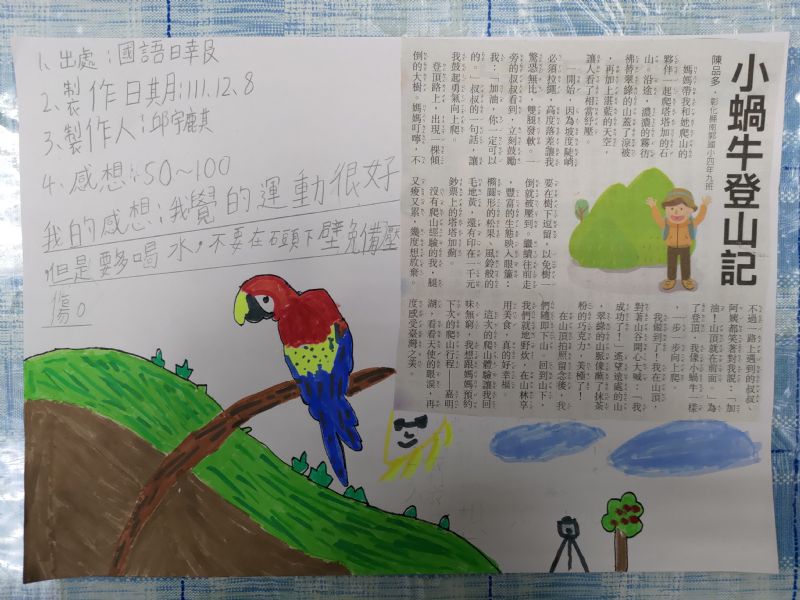 1、出處：國語日報
2、製作日期：111.12.8
3、製作人：邱宇麒
4、感想：50～100
我的感想：我覺的運動很好
，但是要多喝水。不要在石頭下壁免備壓
傷。
小蝸牛登山記
陳品多．彰化縣南郭國小四年九班
媽媽帶我和她爬山的
夥伴一起爬塔塔加的石
山。沿途，濃濃的霧彷
彿替翠綠的山蓋了涼被
，再加上湛藍的天空，
讓人看了相當紓壓。
一開始，因為坡度陡峭
必須拉繩，高度落差讓我
驚恐無比，雙腿發軟。一
旁的叔叔看到，立刻鼓勵
我：「加油，你一定可以
的。」叔叔的一句話，讓
我鼓起勇氣向上爬。
登頂路上，出現一棵傾
倒的大樹。媽媽叮嚀，不
要在樹下逗留，以免樹一
倒就被壓到。繼續往前走
，豐富的生態映入眼簾：
橢圓形的松果、風鈴般的
毛地黃，還有印在一千元
鈔票上的塔塔加薊。
沒有爬山經驗的我，腿
又痠又累，幾度想放棄。
不過一路上遇到的叔叔、
阿姨都笑著對我說：「加
油！山頂就在前面。」為
了登頂，我像小蝸牛一樣
，一步一步向上爬。
我做到了！我在山頂，
對著山谷開心大喊：「我
成功了！」遙望遠處的山
，翠綠的山脈像蘸了抹茶
粉的巧克力，美極了！
在山頂拍照留念後，我
們隨即下山。回到山下，
我們就地野炊，在山林享
用美食，真的好幸福。
這次的爬山體驗讓我回
味無窮，我想跟媽媽預約
下次的爬山行程──嘉明
湖，看看天使的眼淚，再
度感受臺灣之美。